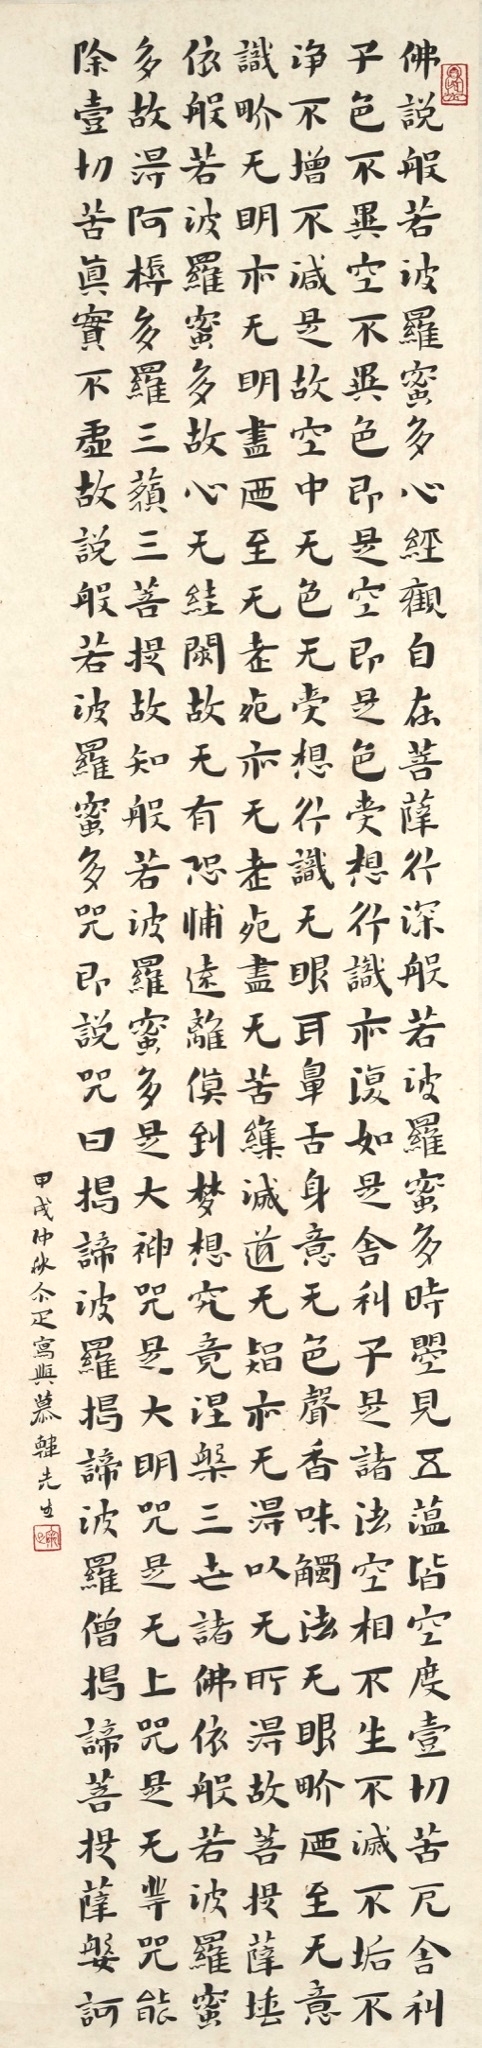 佛說般若波羅蜜多心經觀自在菩薩行深般若波羅蜜多時曌見五蕰皆空度壹切苦厄舍利
子色不異空不異色即是空即是色受想行識亦復如是舍利子是諸法空相不生不滅不垢不
淨不增不減是故空中无色无受想行識无眼耳鼻舌身意无色聲香味觸法无眼界迺至无意
識界无明亦无明盡迺至无老死亦无老死盡无苦集滅道无智亦无得以无所得故菩提薩埵
依般若波羅蜜多故心无絓閡故无有恐怖遠離傎到梦想究竟涅槃三世諸佛依般若波羅蜜
多故得阿耨多羅三藐三菩提故知般若波羅蜜多是大神咒是大明咒是无上咒是无等咒能
除壹切苦眞實不虛故說般若波羅蜜多咒即說咒曰揭諦波羅揭諦波羅僧揭諦菩提薩婆訶
甲戌仲秋尒疋寫與慕韓先生